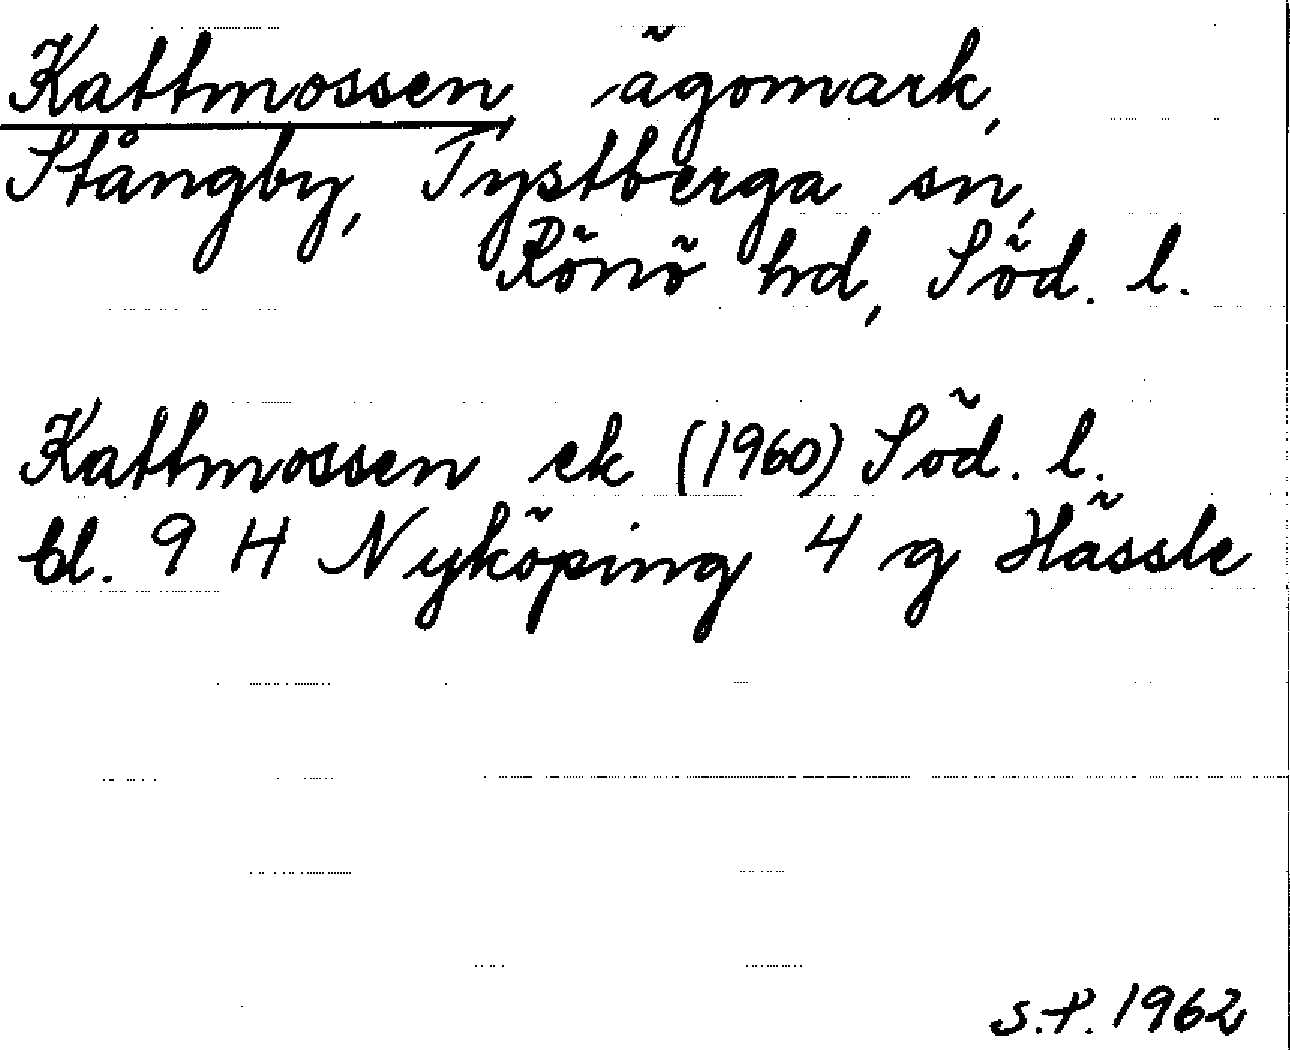 Kattmossen, ägomark,
Stångby, Tystberga sn,
Rönö hd, Söd. l.
Kattmossen ek (1960) Söd. l.
bl. 9 H Nyköping 4 g Hässle
S.P. 1962